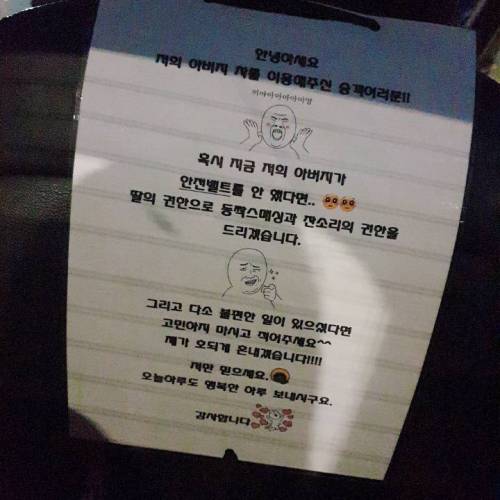 안녕하세요
저의 아버지 차를 이용해주신 승객여러분!!
끼야아아아아아앙
혹시 지금 저의 아버지가
안전벨트를 안 했다면..
딸의 권한으로 등짝스매싱과 잔소리의 권한을
드리겠습니다.
그리고 다소 불편한 일이 있으셨다면
고민하지 마시고 적어주세요^^
제가 호되게 혼내겠습니다!!!!
저만 믿으세요.
오늘하루도 행복한 하루 보내시구요.
감사합니다